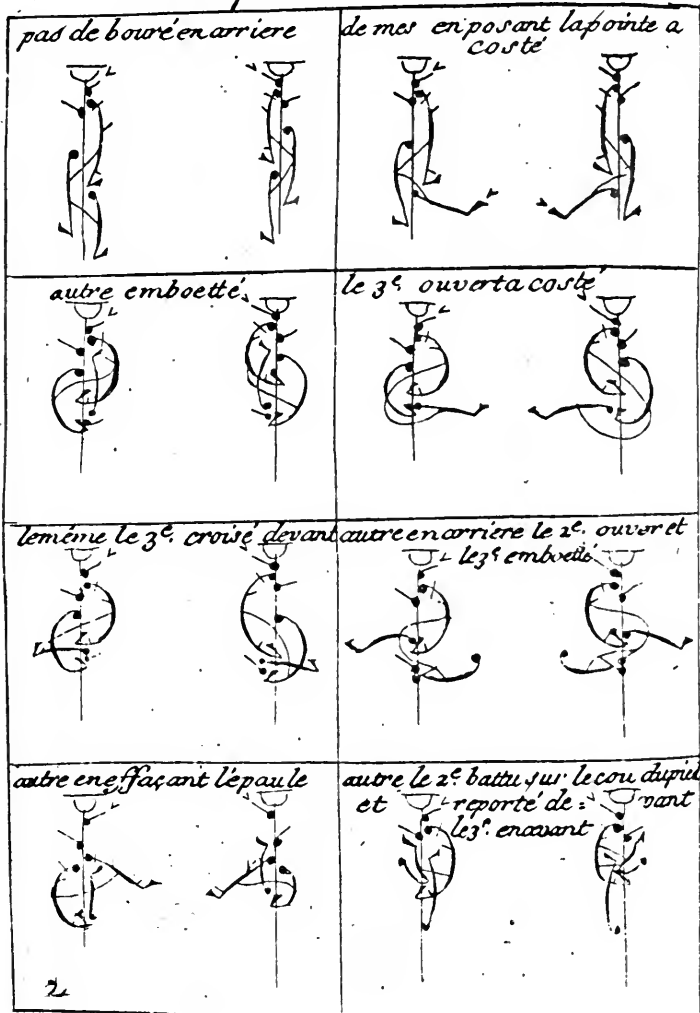 pas de bouré en arriere
de mes en posant la pointe a
costé
autre emboetté
le 3e. ouvert a costé
leméme le 3e. croisé devant
autre en arriere le 2e. ouver et
le 3e emboetté
autre en effaçant l'épaule
autre le 2e. battu sur le cou dupied
et reporté de = vant
le 3e. en avant
2